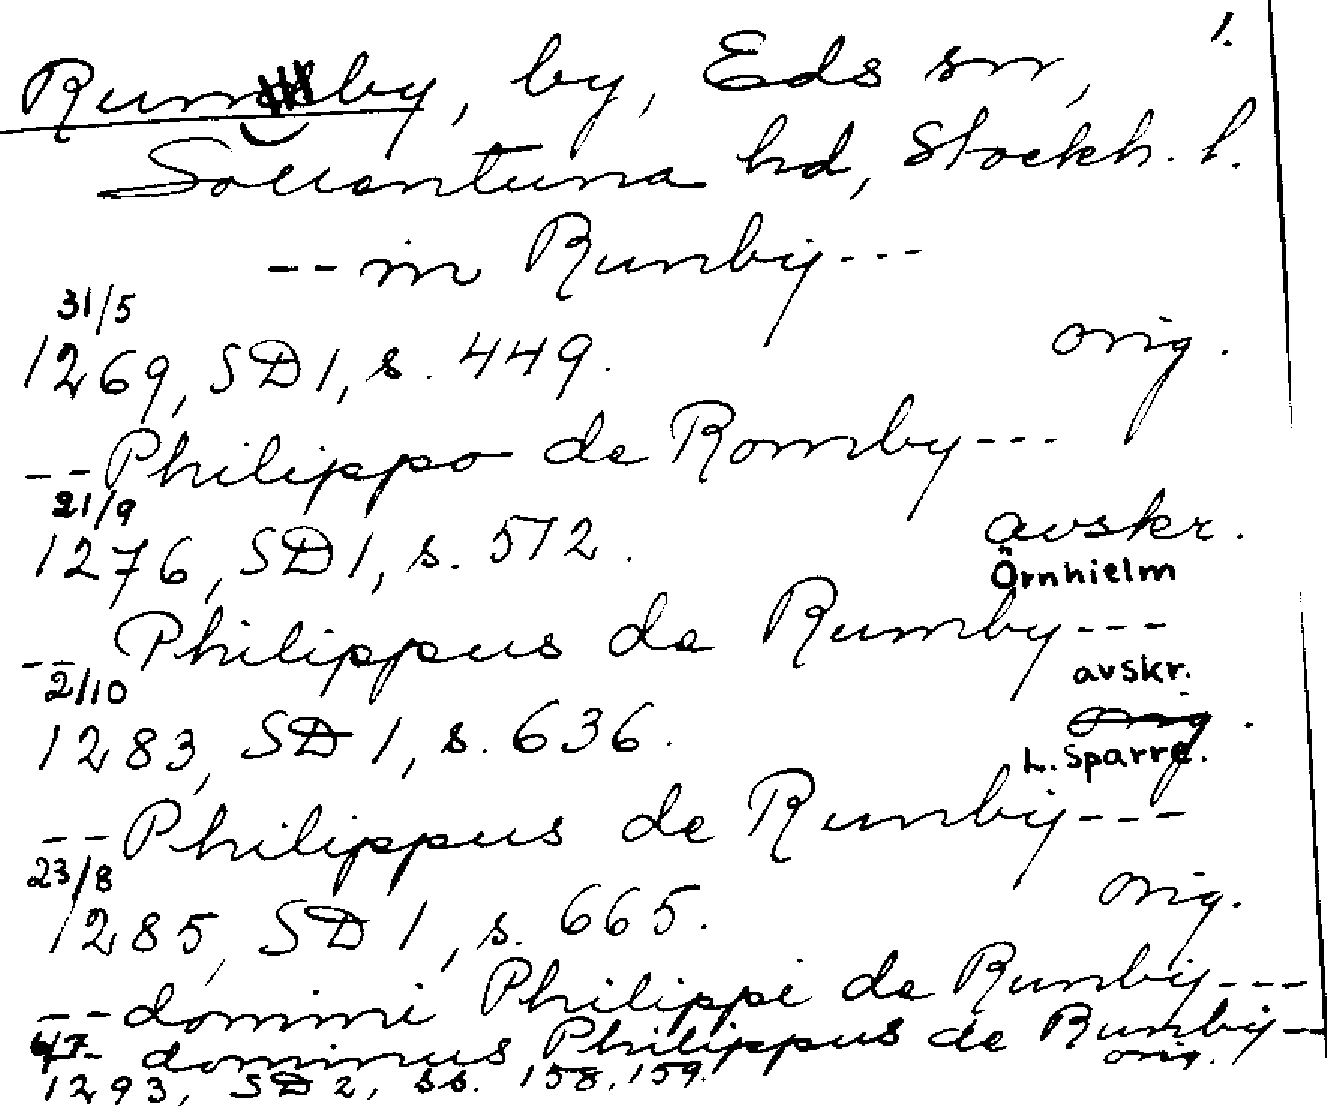 1.
Rumby, by, Eds sn,
Sollentuna hd, Stockh. l.
-- in Runby ---
31/5
1269, SD 1, s. 449. orig.
-- Philippo de Romby ---
21/9
1276, SD 1, s. 512. avskr.
Örnhielm
-- Philippus de Rumby ---
2/10 avskr.
1283, SD 1, s. 636.
L. Sparre.
-- Philippus de Runby ---
23/8
1285, SD 1, s. 665. orig.
-- domini Philippi de Runby ---
-- dominus Philippus de Runby --
1293, SD 2, ss. 158, 159. orig.